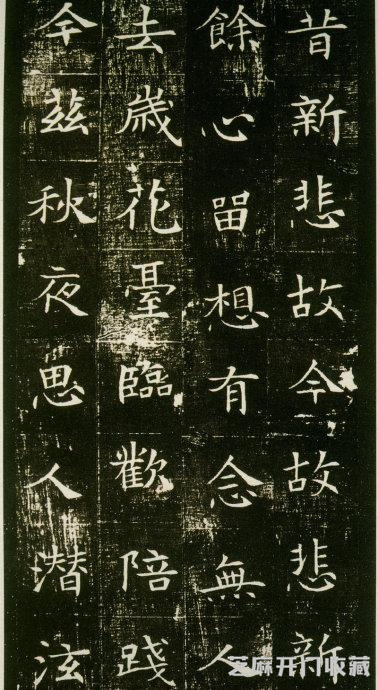 昔新悲故今故悲新
餘心留想有念無人
去歲花臺臨歡陪踐
今茲秋夜思人潜泫
芝麻开门收藏